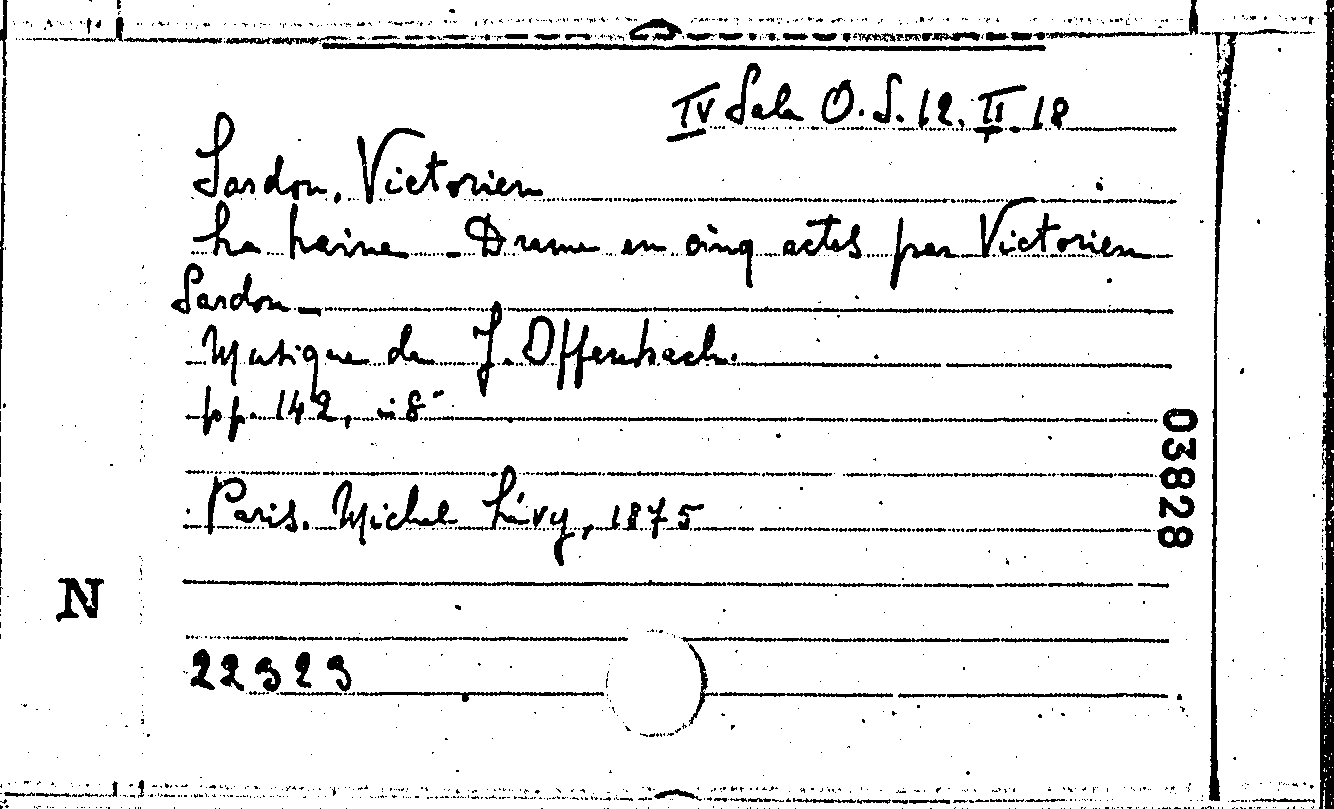 IV Sala O.S.12.II.18
Sardou, Victorien
La haine - Drame en cinq actes par Victorien
Sardou -
Musique de J. Offenbach.
pp. 142, in 8°
03828
Paris. Michel Lévy, 1875
N
22323